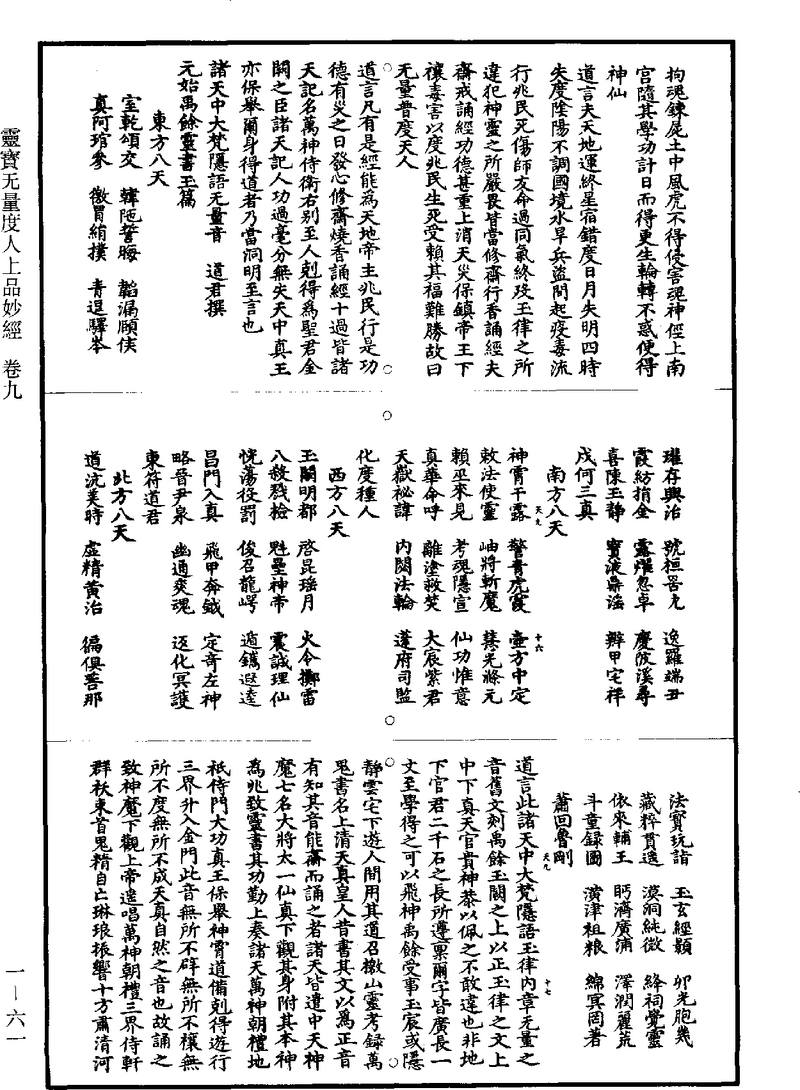 靈寶无量度人上品妙經　卷九
拘魂鍊屍土中風虎不得侵害魂神徑上南
宮隨其學功計日而得更生輪轉不惑便得
神仙
道言夫天地運終星宿錯度日月失明四時
失度陰陽不調國境水旱兵盜間起疫毒流
行兆民死傷師友命過同氣終歿玉律之所
違犯神靈之所嚴畏皆當修齋行香誦經夫
齋戒誦經功德甚重上消天災保鎮帝王下
禳毒害以度兆民生死受賴其福難勝故曰
无量普度天人
道言凡有是經能為天地帝主兆民行是功
德有災之日發心修齋燒香誦經十過皆諸
天記名萬神侍衛右别至人剋得為聖君金
闕之臣諸天記人功過毫分無失天中真王
亦保舉爾身得道者乃當洞明至言也
諸天中大梵隱語无量音　道君撰
元始禹餘靈書玉篇
東方八天
室乾頌交　韓陁誓晦　韜漏願俠
真阿琯參　徹冒綃撲　青退驛岑
璀存興治　號桓罟允　逸羅端丑
霞紡捐全　露耀忽卓　慶陂溪尋
喜陳玉靜　寶液鼎滛　辯甲宅祥
戍何三真
南方八天
神霄干露　警青虎霞　壺方中定
天九
十六
敕法使靈　岫將斬魔　蕪光滌元
賴巫來見　考魂隱宣　仙功惟意
真華命呼　離塗救焚　大宸紫君
天嶽祕諱　內闕法輪　蓬府司監
化度種人
西方八天
玉闕明都　啓昆瑶月　火令擲雷
八赦戮檢　魁壘神帝　震誠理仙
恍蕩役罰　俊召龍崿　遁鑴遐逵
昌門入真　飛甲奔鉞　定奇左神
略晉尹泉　幽通爽魂　返化冥護
東符道君
北方八天
道沆美時　虛精黄治　徧俱善那
法寶玩誥　玉玄經顥　卯光胞幾
藏粹貫造　漠洞純微　絳祠覺靈
依來輔王　眄濟廣滴　澤潤麗荒
斗童録圖　潢津祖粮　綿宾罔著
蕭回魯剛
天九
十七
道言此諸天中大梵隱語玉律内章无量之
音舊文刻禹餘玉闕之上以正玉律之文上
中下真天官貴神恭以佩之不敢違也非地
下官君二千石之長所遵禀爾字皆廣長一
文至學得之可以飛神禹餘受事玉宸或隱
靜雲宅下遊人間用其道召檄山靈考録萬
鬼書名上清天真皇人昔書其文以為正音
有知其音能齋而誦之者諸天皆遣中天神
魔七名大將太一仙真下觀其身附其本神
為兆致靈書其功勤上奏諸天萬神朝禮地
祇侍門大功真王保舉神霄道備剋得遊行
三界升入金門此音無所不辟無所不禳無
所不度無所不成天真自然之音也故誦之
致神魔下觀上帝遥唱萬神朝禮三界侍軒
群袄束首鬼精自亡琳琅振響十方肅清河
一—六一